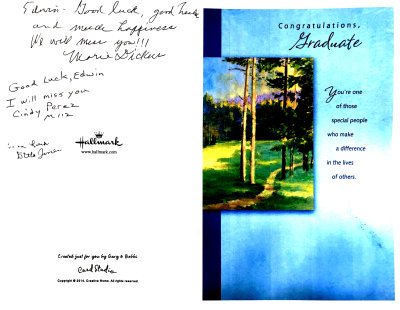 Edwin- Good luck, good health
and much happiness
We will miss you!!!
Marie Dickens
Good Luck, Edwin
I will miss you
Cindy Perez
M112
luck
Hallmark
www.hallmark.com
Created just for you by Gary & Bobbi
Card Studio
Copyright © 2014. Creative Home. All rights reserved.
Congratulations,
Graduate
You're one
of those
special people
who make
a difference
in the lives
of others.